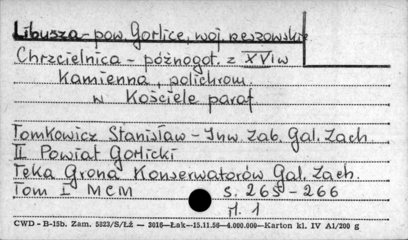 Libusza - pow. Gorlice, woj. rzeszowskie
Chrzcielnica - późnogot. z XVI w
Kamienna, polichrom.
w Kościele paraf.
Tomkowicz Stanisław - Inw. Zab. Gal. Zach.
II Powiat Gorlicki
Teka Grona Konserwatorów Gal. Zach.
Tom I MCM s. 265 - 266
il. 1
CWD - B-15b. Zam. 5823/S/Łż — 3016—Łak—15.11.56—4.000.000—Karton kl. IV A1/200 g